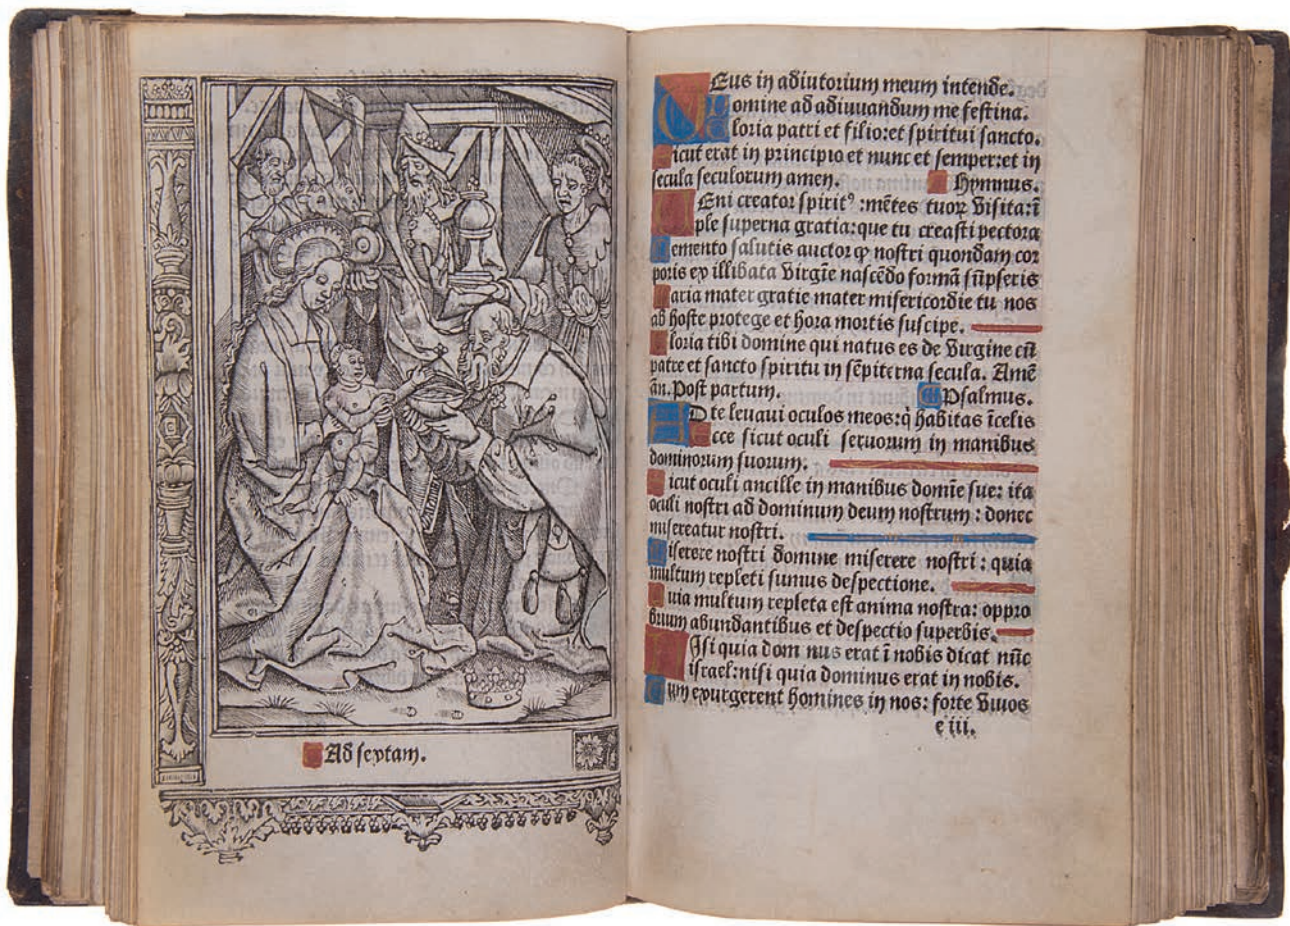 Ad sextam.
Deus in adiutorium meum intende.
Domine ad adiuuandum me festina.
Gloria patri et filio: et spiritui sancto.
Sicut erat in principio et nunc et semper: et in
secula seculorum amen. Hymnus.
VEni creator spiritꝰ: mētes tuoꝝ visita: ī
ple superna gratia: que tu creasti pectora
Memento salutis auctor ꝙ nostri quondam cor
poris ex illibata virgīe nascēdo formā sūpseris
Maria mater gratie mater misericordie tu nos
ab hoste protege et hora mortis suscipe.
Gloria tibi domine qui natus es de virgine cū
patre et sancto spiritu in sēpiterna secula. Amē
añ. Post partum. Psalmus.
AD te leuaui oculos meos: q̇ habitas īcelis
Ecce sicut oculi seruorum in manibus
dominorum suorum.
Sicut oculi ancille in manibus domīe sue: ita
oculi nostri ad dominum deum nostrum: donec
misereatur nostri.
Miserere nostri domine miserere nostri: quia
multum repleti sumus despectione.
Quia multum repleta est anima nostra: oppro
brium abundantibus et despectio superbis.
NIsi quia dom nus erat ī nobis dicat nūc
israel: nisi quia dominus erat in nobis.
Cum exurgerent homines in nos: forte viuos
e iii.